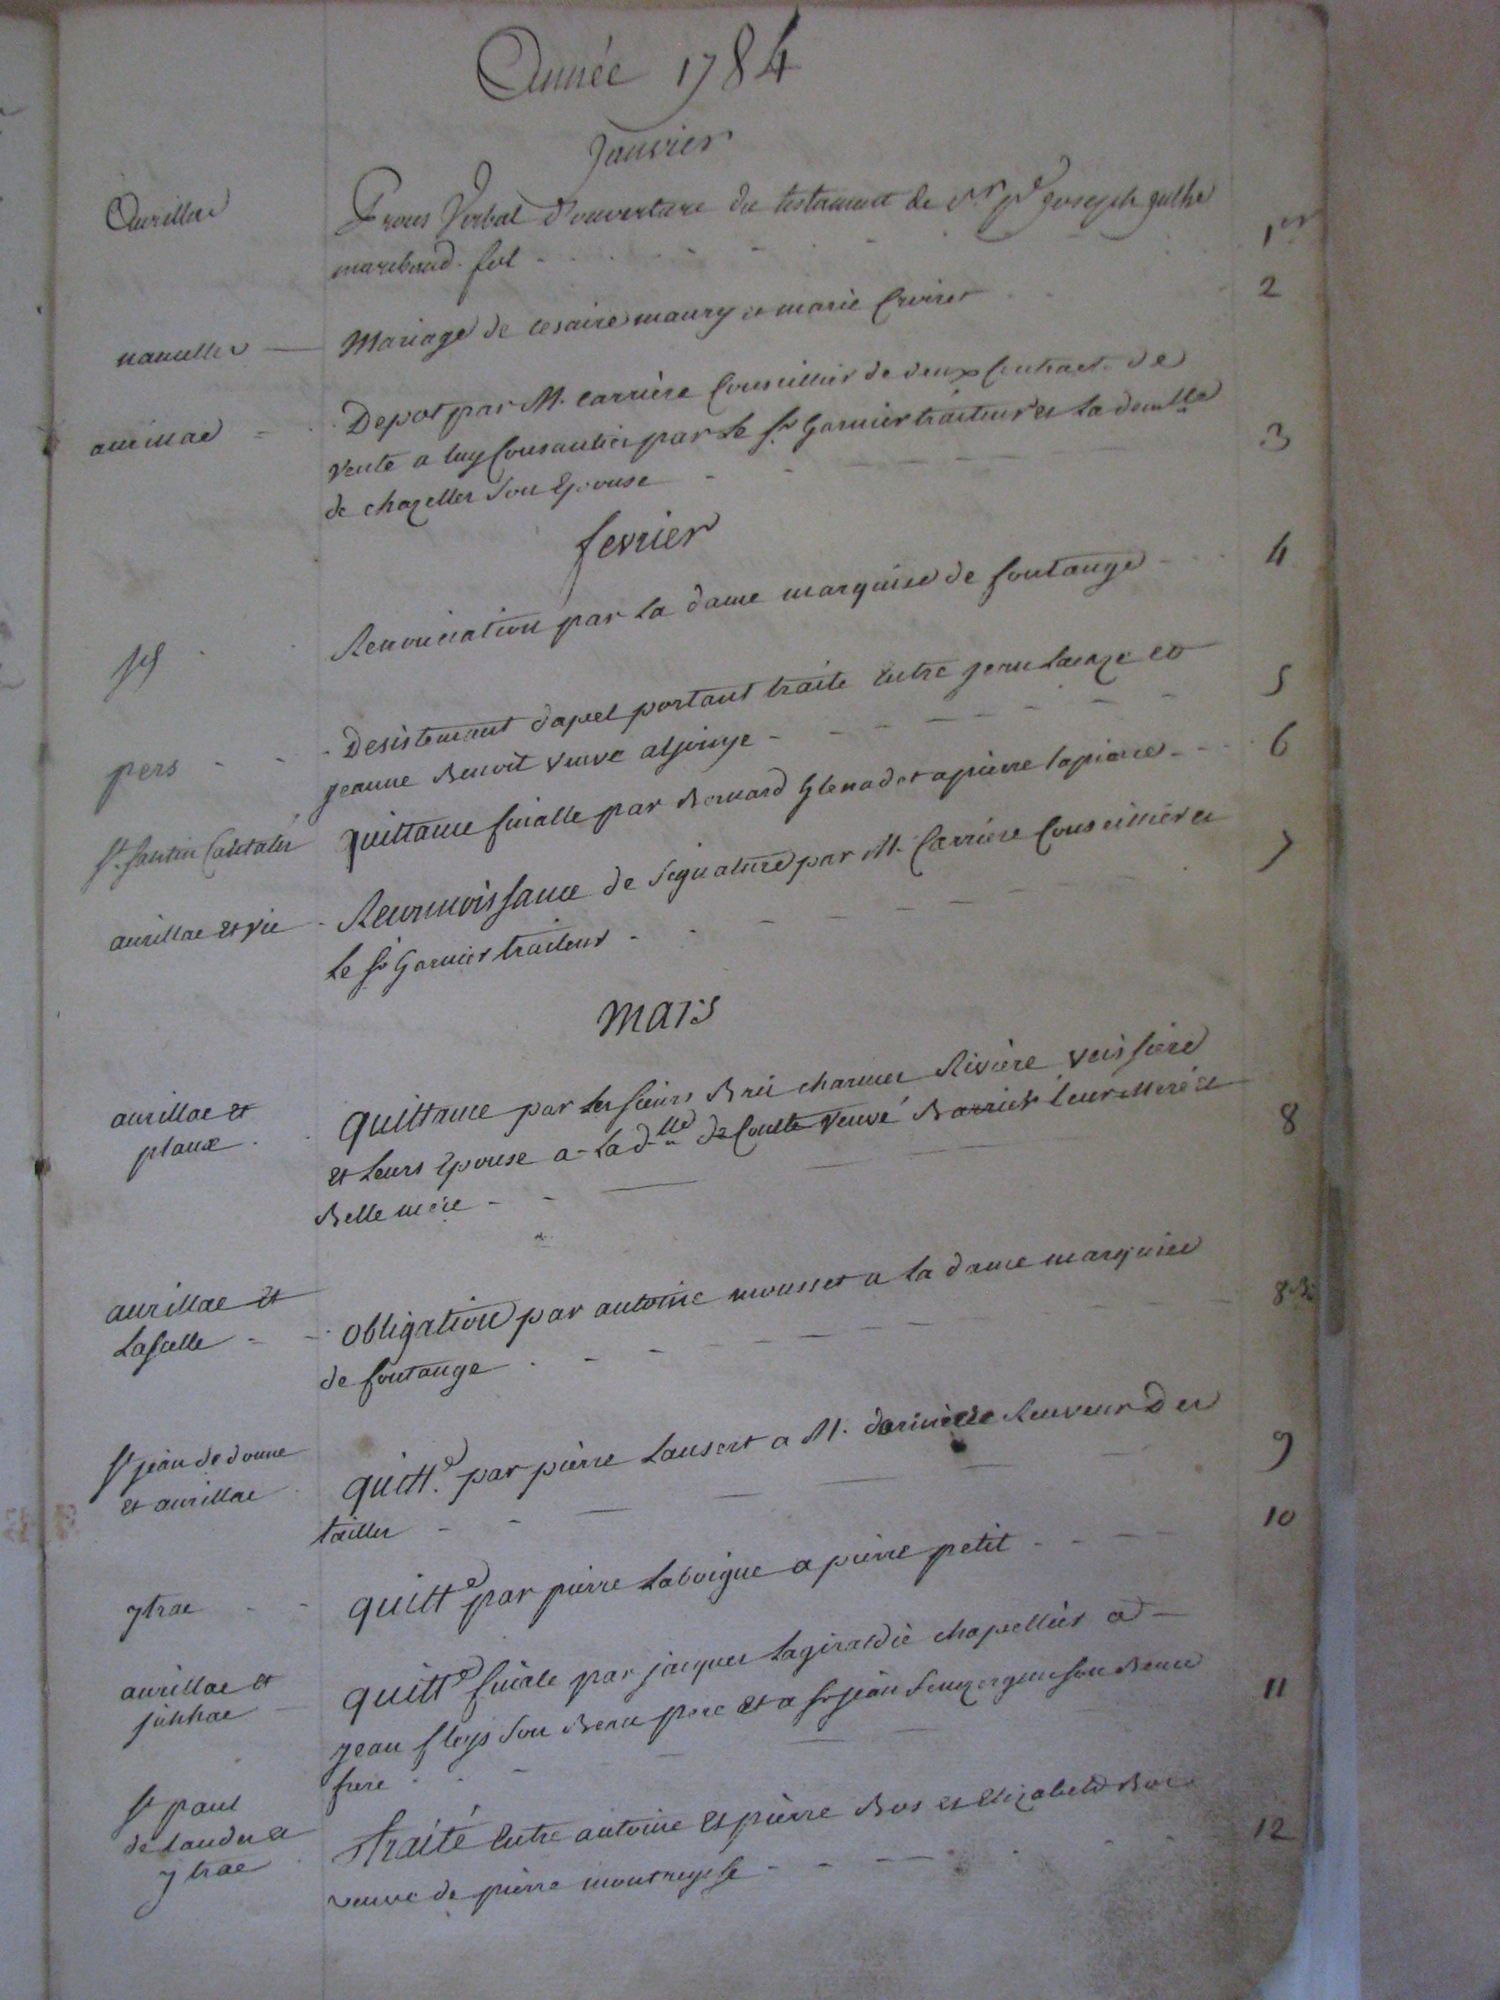 Année 1784
Janvier
Aurillac
Proces Verbal d'ouverture du testament de Sr joseph
marchand. fol 1er
naucelles Mariage de cesaire maury et marie Croizet 2
aurillac Depot par M. carriere Conseillier de deux Contract de
vente a luy Consentier par le Sr Garnier traiteur et la demlle
de chazelles son Epouse 3
fevrier
Renonciation par la dame marquise de fontange 4
pers Desistemant d'apel portant traité Entre jean Lauze et
jeanne Benoit veuve 5
St. Santin Cantalés quittance finalle par Bernard Glenadet a pierre lapierre 6
aurillac et vic Reconnoissance de signature par M. Carriere Conseillier et
le Sr Garnier traiteur 7
mars
aurillac et
quittance par les sieurs Bru charmes Riviere veissiere
et leurs Epouse a la dlle de Conlte veuve Barriat leur Mere et
Belle mere 8
aurillac et
Lascelle obligation par antoine mousset a la dame marquise
de fontange 8 Bis
St jean de donne
et aurillac
quitte. par pierre Lausert a M. deriviere Receveur Des
tailles 9
ytrac quitte par pierre Laboigue a pierre petit 10
aurillac et
jussac
quitte finale par jacques Lagirardie chapellier a
jean fleys son Beau pere et a Sr jean son Beau
frere 11
St paul
de landes et
ytrac
Traité Entre antoine et pierre Bos et Elizabeth Bos
veuve de pierre montreysse 12